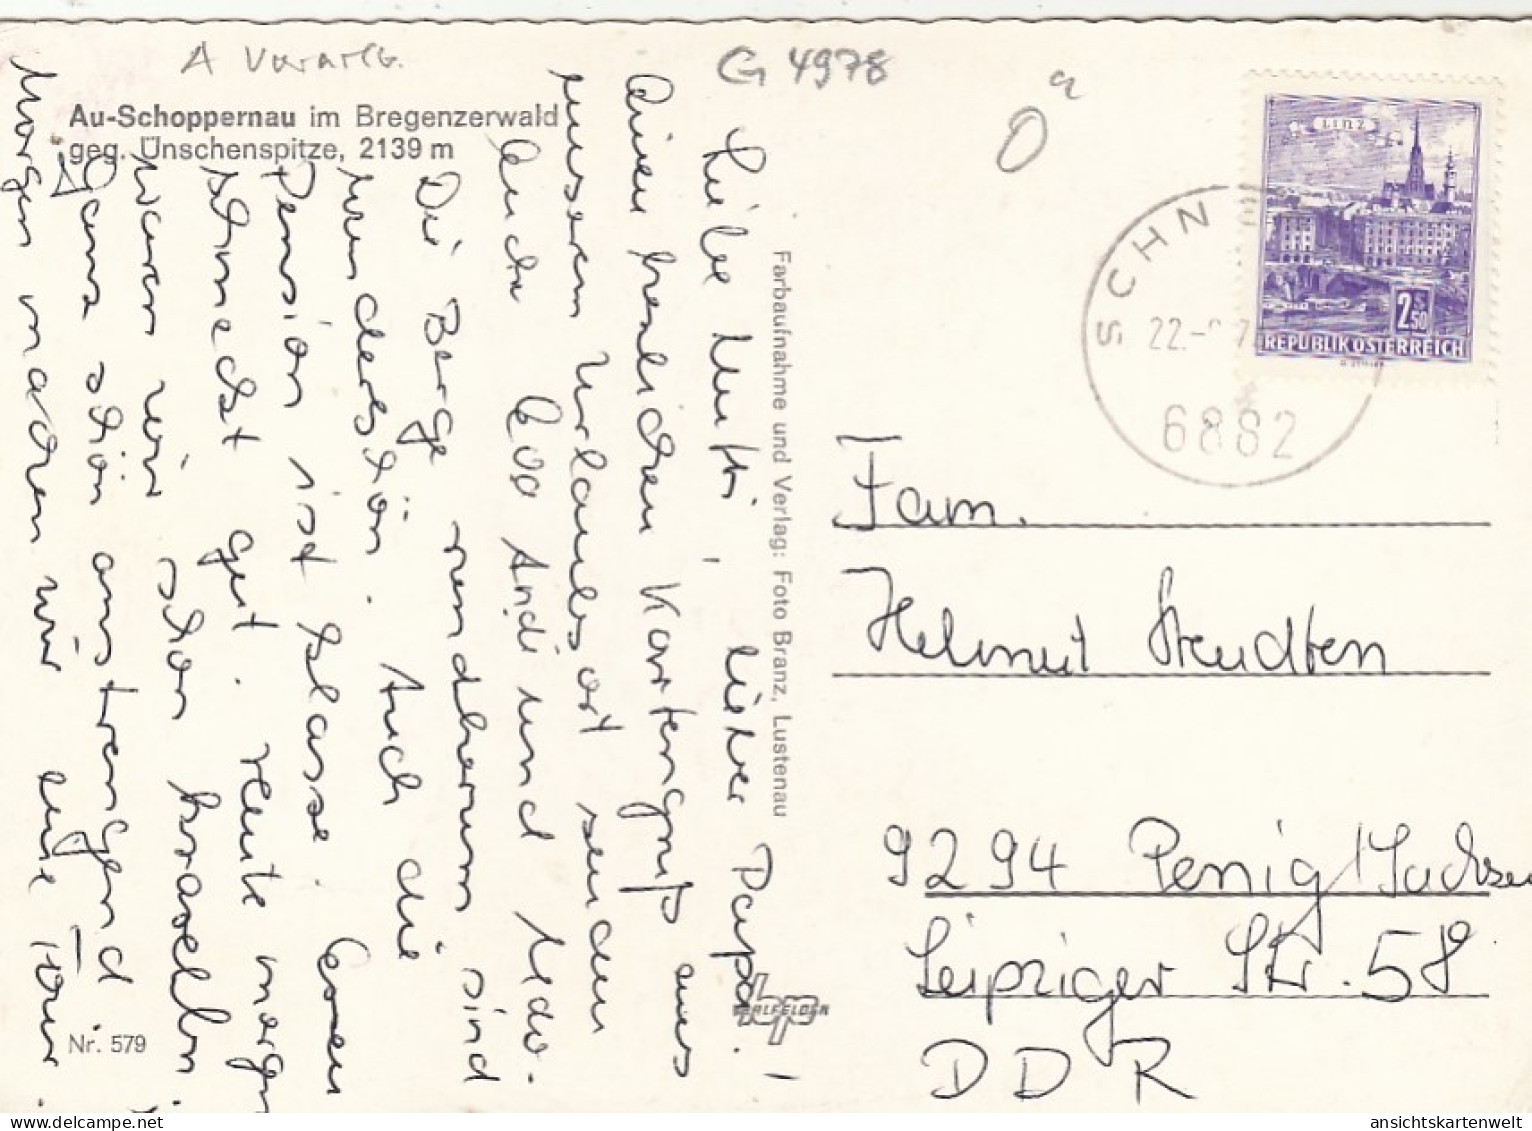 A Vorarlb.
G 4978
Au-Schoppernau im Bregenzerwald
geg. Ünschenspitze, 2139 m
Liebe Mutti, lieber Papa!
Einen herzlichen Kartengruß aus
unserem Urlaubsort senden
Euch Eva Andi und
Die Berge rundherum sind
wunderschön. Auch die
Pension ist klasse. Essen
schmeckt gut. Heute morgen
waren wir schon kraxeln.
Ganz schön anstrengend
Morgen machen wir eine Tour.
Farbaufnahme und Verlag: Foto Branz, Lustenau
Nr. 579
LINZ
2.50
REPUBLIK ÖSTERREICH
SCHN
22.-
6882
Fam.
Helmut
9294 Penig/Sachsen
Leipziger Str. 58
DDR
ansichtskartenwelt.com